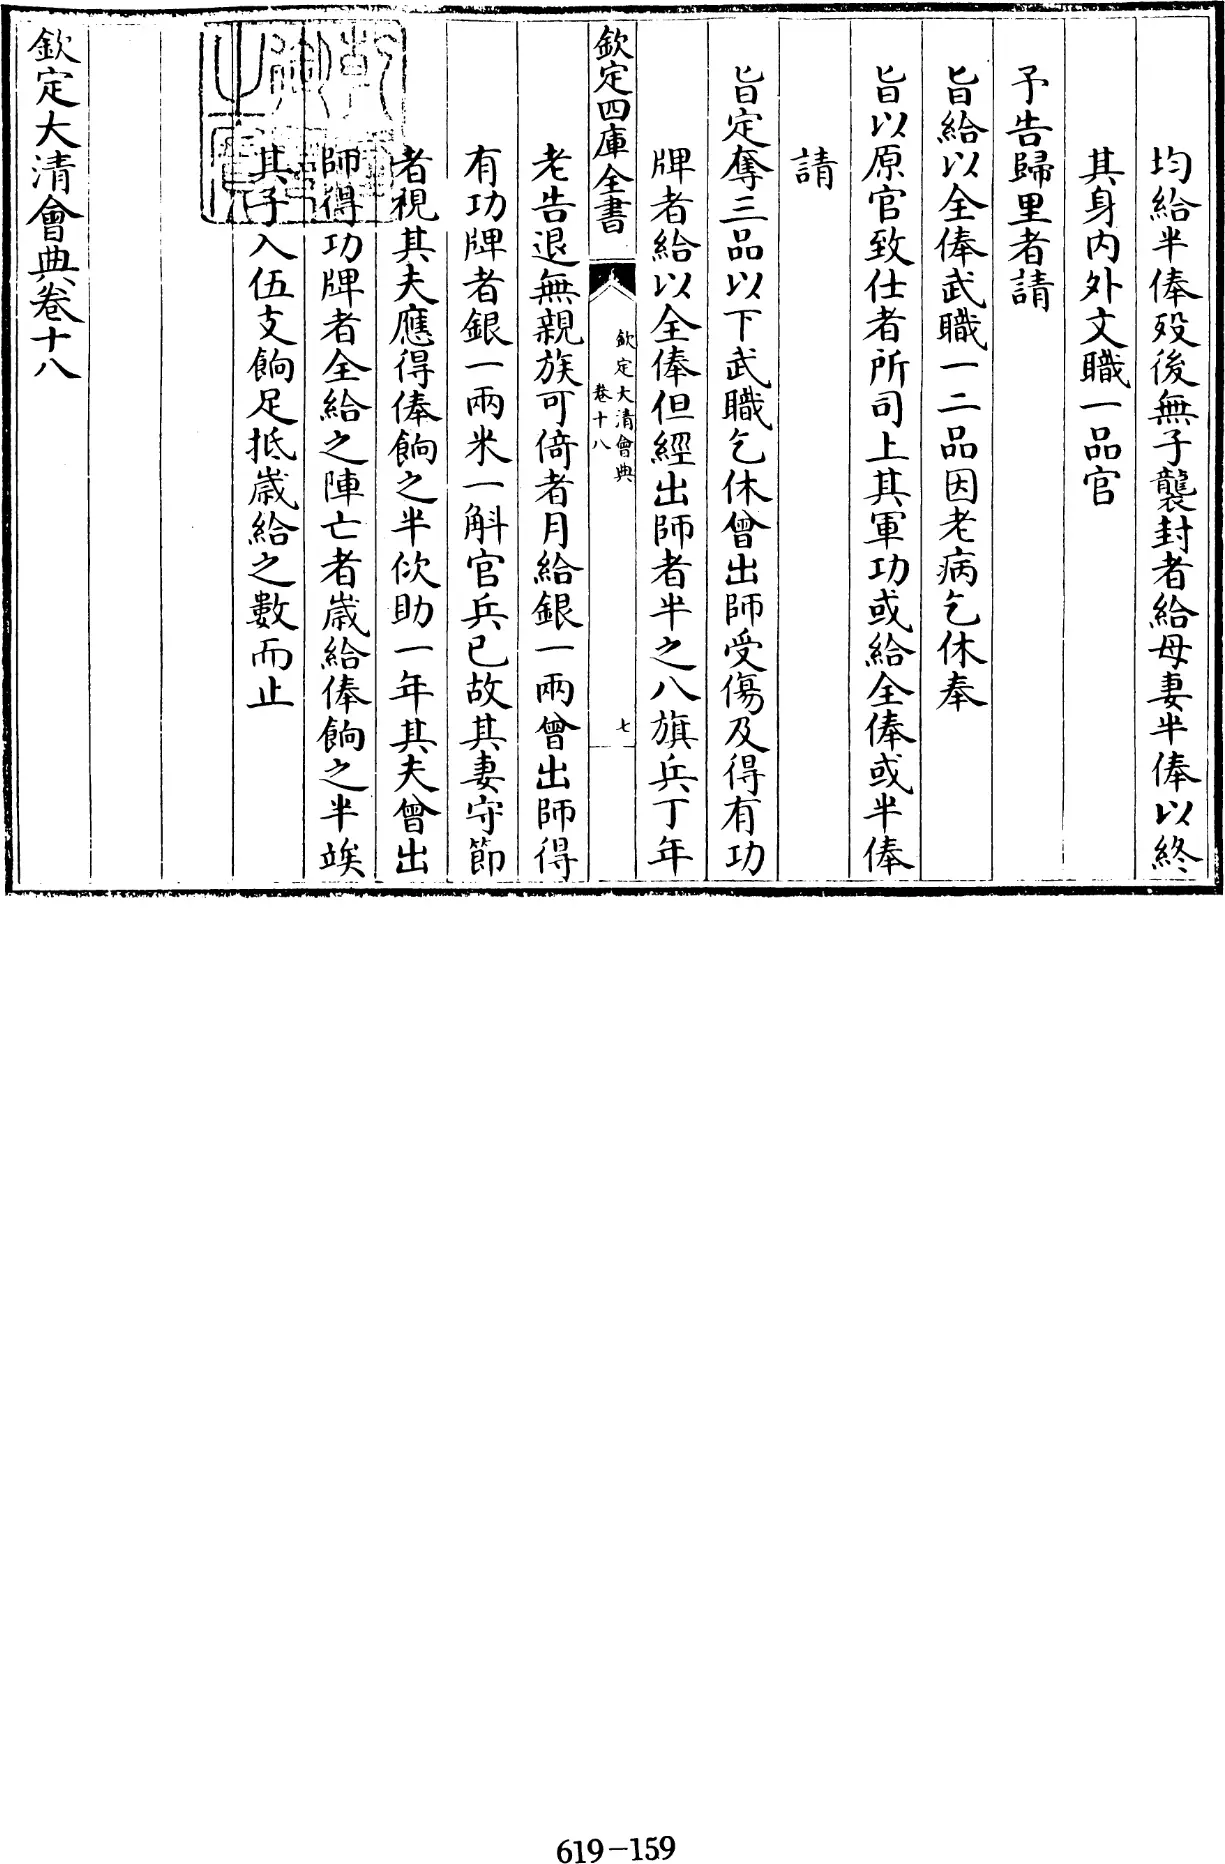 均給半俸歿後無子襲封者給母妻半俸以終
其身内外文職一品官
予告歸里者請
旨給以全俸武職一二品因老病乞休奉
旨以原官致仕者所司上其軍功或給全俸或半俸
請
旨定奪三品以下武職乞休曾出師受傷及得有功
牌者給以全俸但經出師者半之八旗兵丁年
欽定四庫全書
欽定大清會典
卷十八
七
老告退無親族可倚者月給銀一兩曾出師得
有功牌者銀一兩米一斛官兵已故其妻守節
者視其夫應得俸餉之半佽助一年其夫曾出
師得功牌者全給之陣亡者歲給俸餉之半竢
其子入伍支餉足抵歲給之數而止
欽定大清會典卷十八
619-159